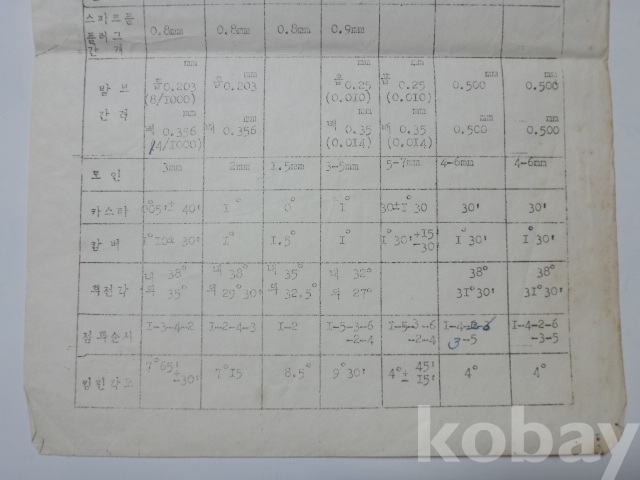 스파크 플
러그
간격 0.8mm 0.8mm 0.8mm 0.9mm
mm mm mm mm mm mm
발브 흡0.203 흡0.203 흡0.25 흡0.25 0.500 0.500
(8/1000) (0.010) (0.010)
mm mm mm
간격 배 0.356 배 0.356 배 0.35 배 0.35 0.500 0.500
(14/1000) (0.014) (0.014)
토인 3mm 2mm 1.5mm 3-5mm 5-7mm 4-6mm 4-6mm
카스타 I° 0° I° 30±I°30 30' 30'
캄버 I° I.5° I° I°30' +15 -30 I°30' I°30'
내 38° 내 38° 내 35° 내 32° 38° 38°
외 35° 외 29°30' 외 32.5° 외 27° 3I°30' 3I°30'
점화순서 I-3-4-2 I-2-4-3 I-2 I-5-3-6 I-5-3-6 I-4-2-6 I-4-2-6
-2-4 -2-4 3-5 -3-5
7°65' ±30' 7°I5 8.5° 9°30' 4°± 45' I5' 4° 4°
kobay